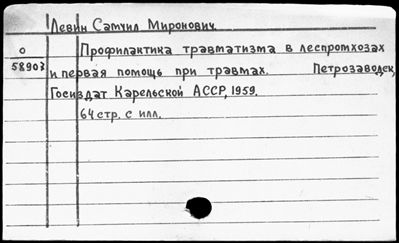 Левин Самуил Миронович.
О
58903
Профилактика травматизма в леспромхозах
и первая помощь при травмах. Петрозаводск,
Госиздат Карельской АССР, 1959.
64 стр. с илл.